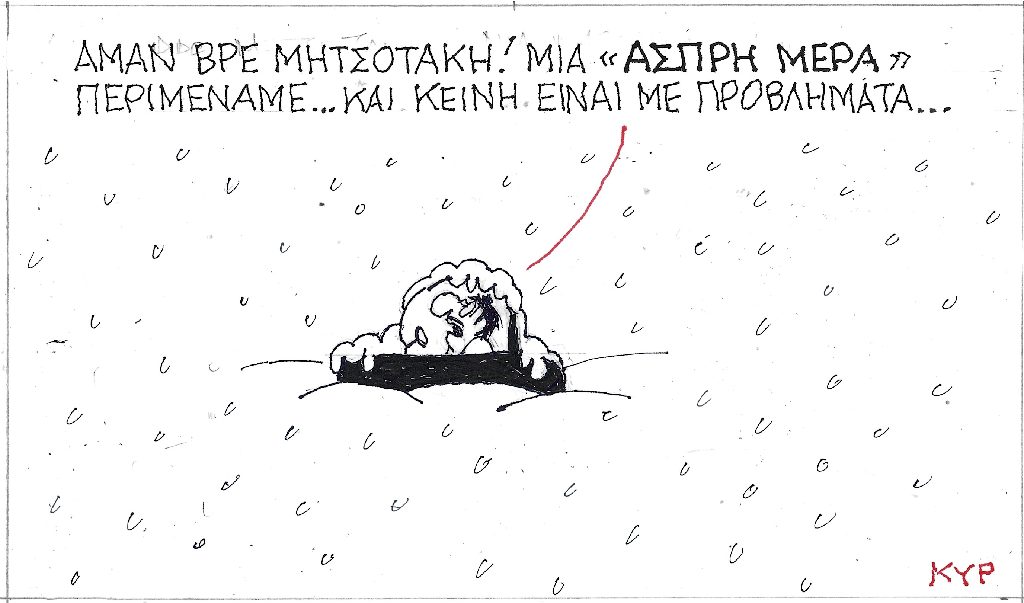 ΑΜΑΝ ΒΡΕ ΜΗΤΣΟΤΑΚΗ! ΜΙΑ «ΑΣΠΡΗ ΜΕΡΑ»
ΠΕΡΙΜΕΝΑΜΕ...ΚΑΙ ΚΕΙΝΗ ΕΙΝΑΙ ΜΕ ΠΡΟΒΛΗΜΑΤΑ...
ΚΥΡ